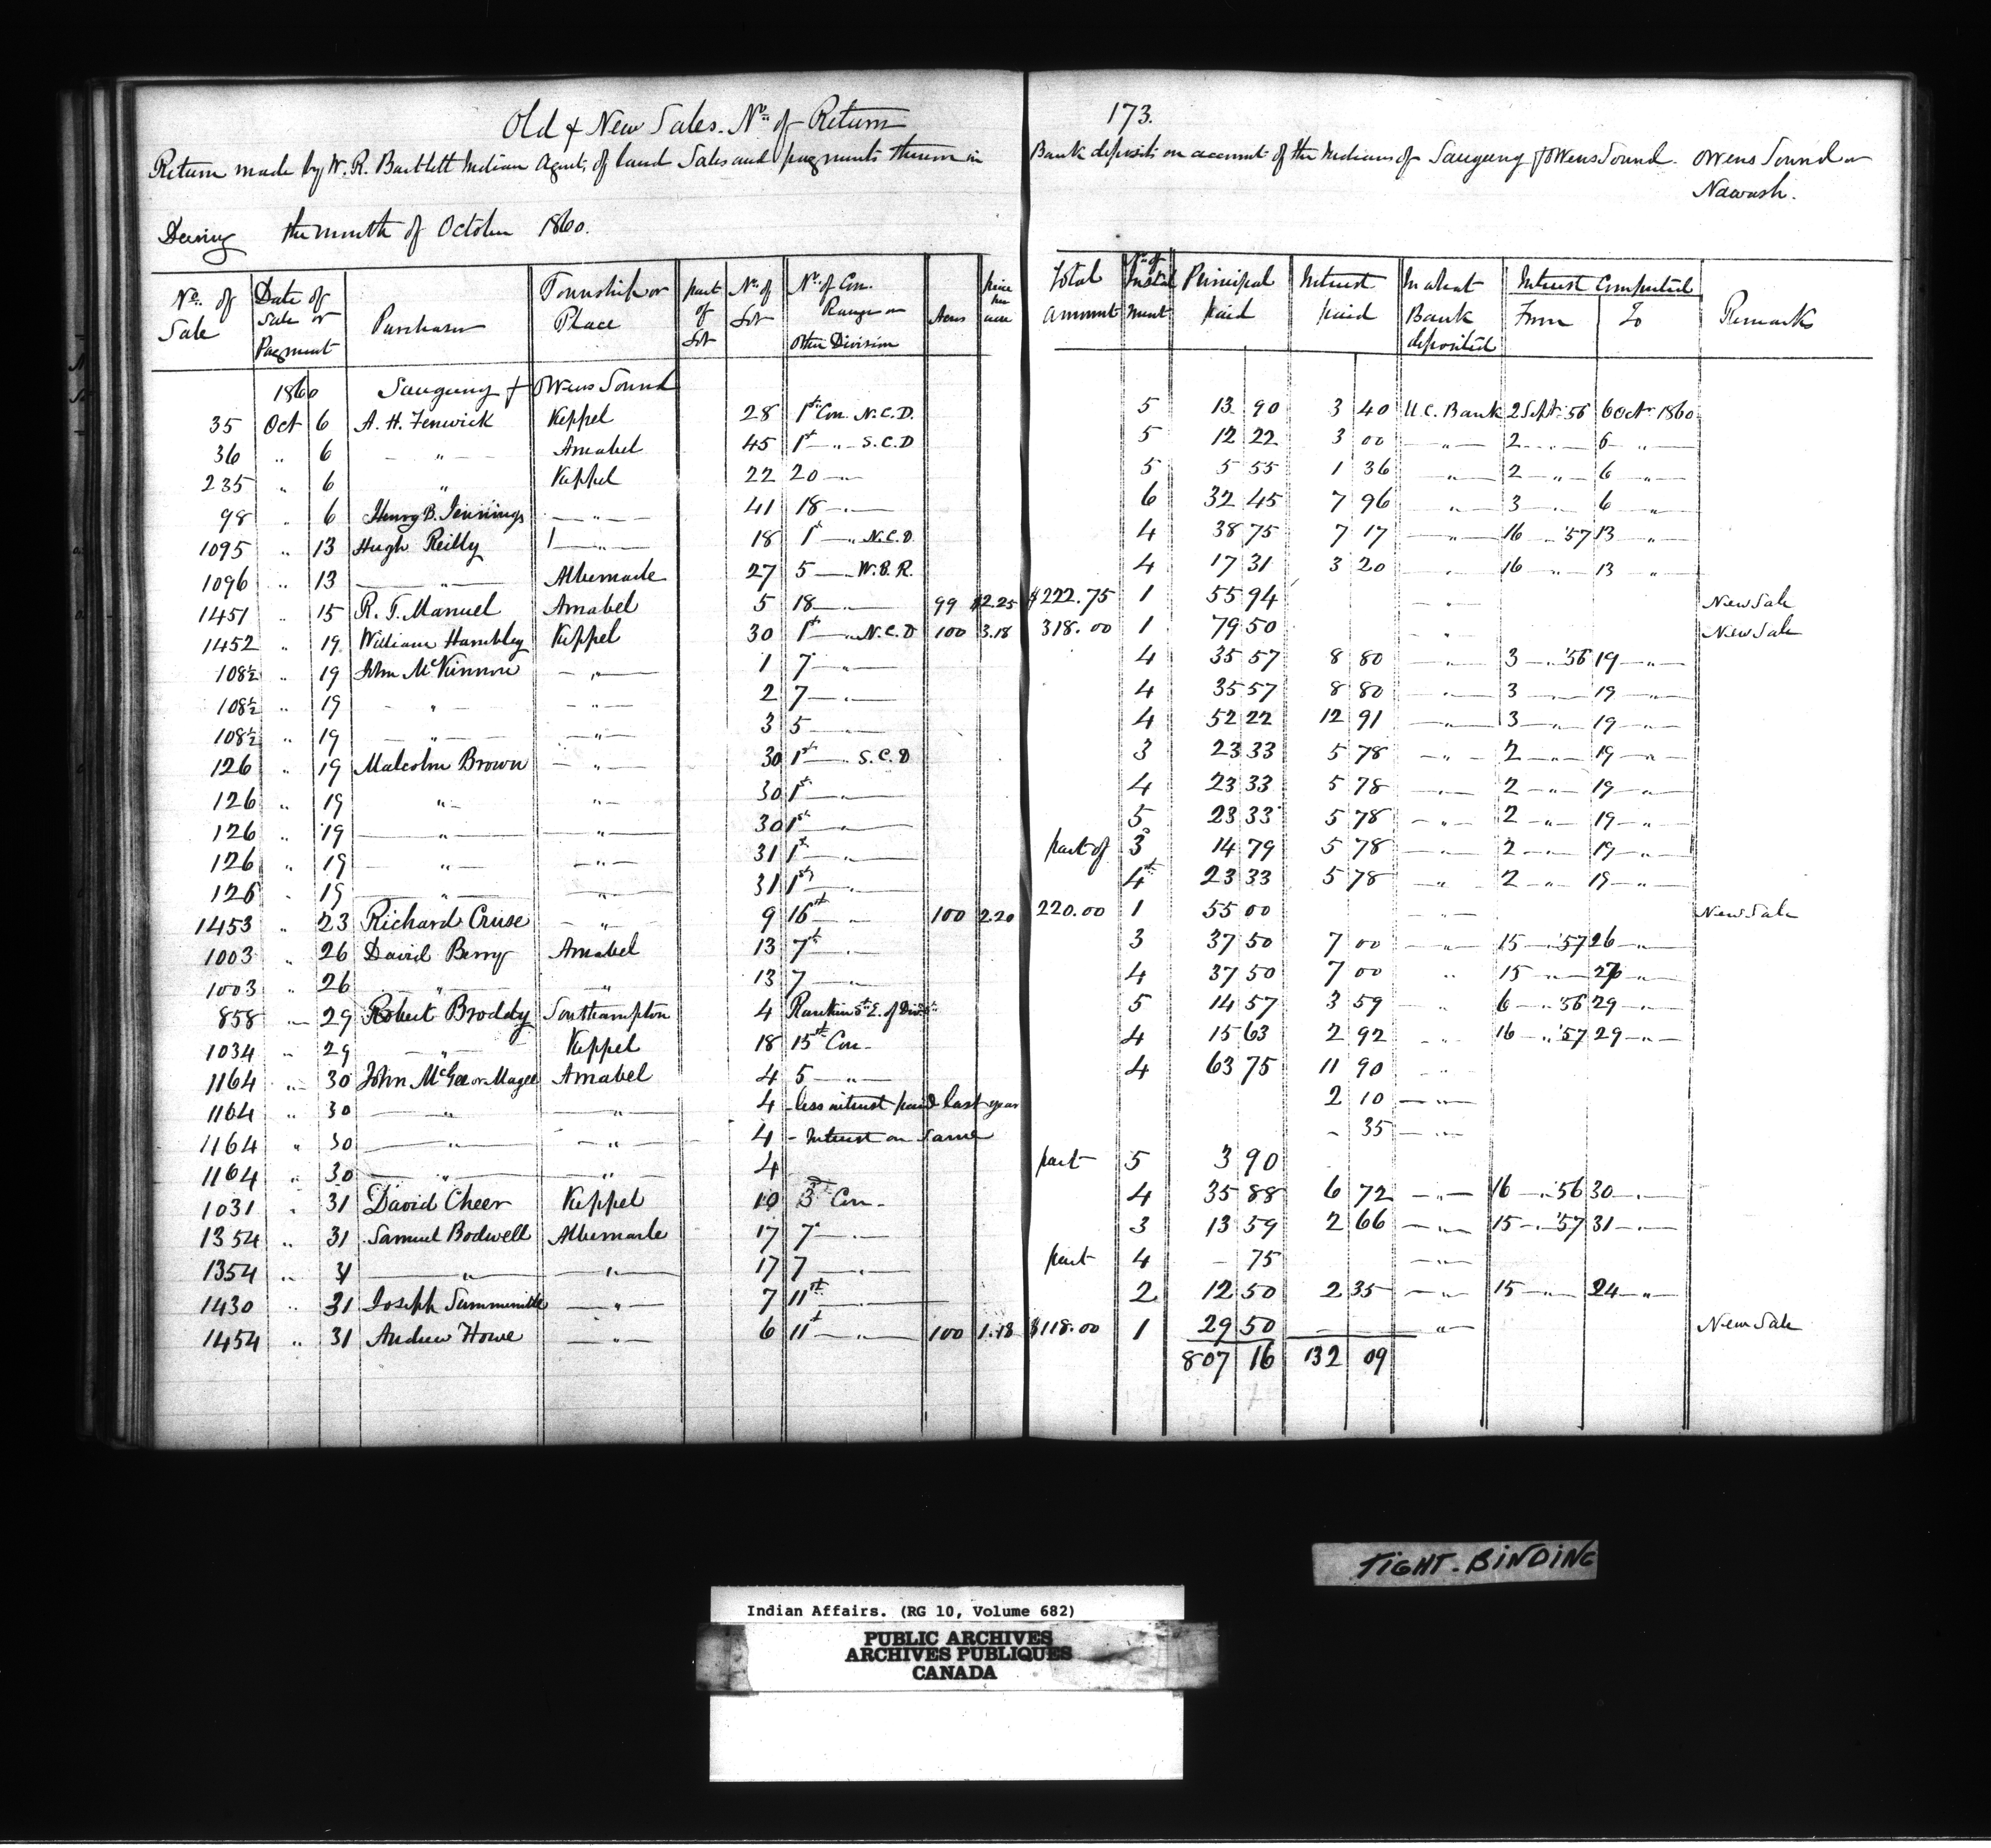 Old & New Sales. No. of Return 173.
Return made by W. R. Bartlett Indian Agent, of land Sales and payments thereon in Bank deposits on account of the Indians of Saugeeng & Owens Sound. Owens Sound or Nawash.
During the month of October 1860.
No. of Sale | Date of Sale or Payment | Purchaser | Township or Place | part of Lot | No. of Lot | No. of Con. Range or other Division | Acres | price per acre | Total amount | No. of Instalment | Principal paid | Interest paid | In what Bank deposited | Interest Computed From | To | Remarks
1860 Saugeeng & Owens Sound
35 Oct 6 A. H. Fenwick Keppel 28 1st Con. N.C.D. 5 13 90 3 40 U.C. Bank 2 Sept. '56 6 Octr 1860
36 " 6 " Amabel 45 1st " S.C.D 5 12 22 3 00 " 2 " 6 "
235 " 6 " Keppel 22 20 " 5 5 55 1 36 " 2 " 6 "
98 " 6 Henry B. Jennings " 41 18 " 6 32 45 7 96 " 3 " 6 "
1095 " 13 Hugh Reilly " 18 1st " N.C.D 4 38 75 7 17 " 16 " '57 13 "
1096 " 13 " Albemarle 27 5 " W.B.R. 4 17 31 3 20 " 16 " 13 "
1451 " 15 R. T. Manuel Amabel 5 18 " 99 $2.25 $222.75 1 55 94 " New Sale
1452 " 19 William Hambley Keppel 30 1st " N.C.D 100 3.18 318.00 1 79 50 " New Sale
108½ " 19 John McKinnon " 1 7 " 4 35 57 8 80 " 3 " '56 19 "
108½ " 19 " " 2 7 " 4 35 57 8 80 " 3 " 19 "
108½ " 19 " " 3 5 " 4 52 22 12 91 " 3 " 19 "
126 " 19 Malcolm Brown " 30 1st " S.C.D 3 23 33 5 78 " 2 " 19 "
126 " 19 " " 30 1st " 4 23 33 5 78 " 2 " 19 "
126 " 19 " " 30 1st " 5 23 33 5 78 " 2 " 19 "
126 " 19 " " 31 1st " part of 3 14 79 5 78 " 2 " 19 "
126 " 19 " " 31 1st " 4th 23 33 5 78 " 2 " 19 "
1453 " 23 Richard Cruse " 9 16 " 100 2.20 220.00 1 55 00 " New Sale
1003 " 26 David Berry Amabel 13 7 " 3 37 50 7 00 " 15 " '57 26 "
1003 " 26 " " 13 7 " 4 37 50 7 00 " 15 " 26 "
858 " 29 Robert Broddy Southampton 4 Rankin St. E. of 5 14 57 3 59 " 6 " '56 29 "
1034 " 29 " Keppel 18 15 Con. 4 15 63 2 92 " 16 " '57 29 "
1164 " 30 John McGee or Magee Amabel 4 5 " 4 63 75 11 90 "
1164 " 30 " " 4 - less interest paid last year 2 10 "
1164 " 30 " " 4 - Interest on Same - 35 "
1164 " 30 " " 4 part 5 3 90
1031 " 31 David Cheer Keppel 10 3 Con. 4 35 88 6 72 " 16 " '56 30 "
1354 " 31 Samuel Bodwell Albemarle 17 7 " 3 13 59 2 66 " 15 " '57 31 "
1354 " 31 " " 17 7 " part 4 - 75 "
1430 " 31 Joseph " 7 11 " 2 12 50 2 35 " 15 " 24 "
1454 " 31 Andrew Howe " 6 11 " 100 1.18 $118.00 1 29 50 " New Sale
807 16 132 09
TIGHT-BINDING
Indian Affairs. (RG 10, Volume 682)
PUBLIC ARCHIVES
ARCHIVES PUBLIQUES
CANADA